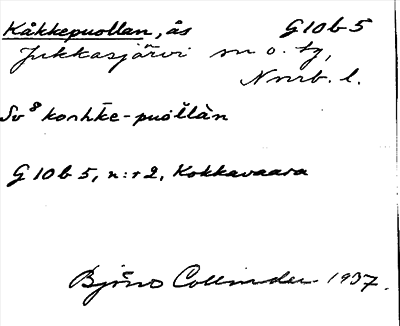 Kåkkepuollan, ås G10b5
Jukkasjärvi sn o. tg,
Nnrb. l.
G10b5, n:r 2, Kokkavaara
Björn Collinder 1937.